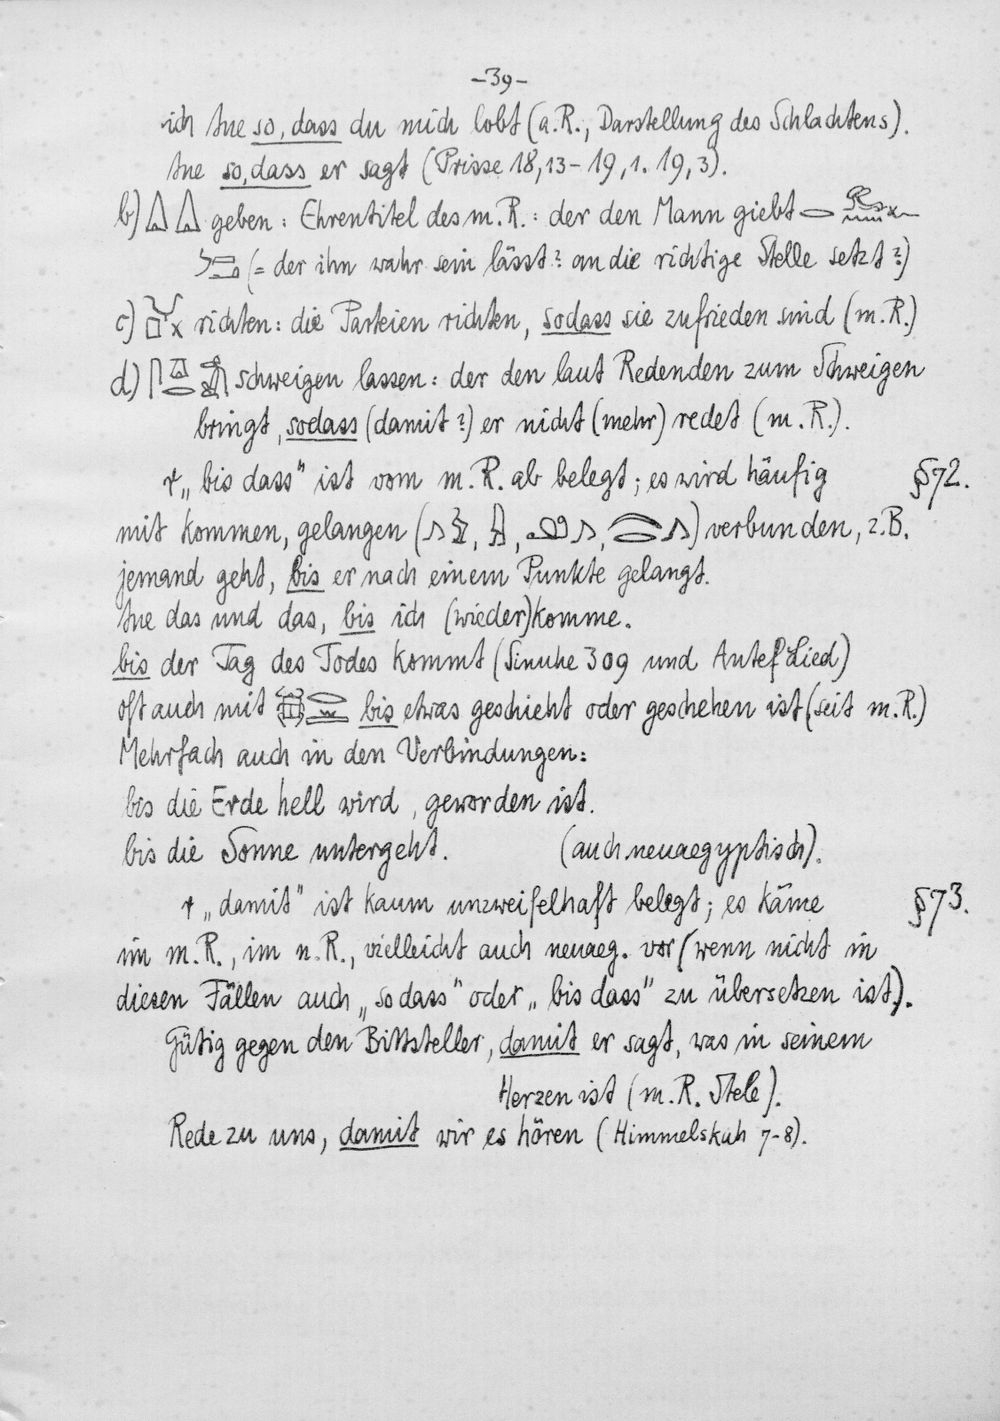 -39-
ich tue so, dass du mich lobt (a.R., Darstellung des Schlachtens).
tue so, dass er sagt (Prisse 18,13-19,1. 19,3).
b) geben: Ehrentitel des m.R.: der den Mann giebt
(= der ihn wahr sein lässt? an die richtige Stelle setzt?)
c) richten: die Parteien richten, sodass sie zufrieden sind (m.R.)
d) schweigen lassen: der den laut Redenden zum Schweigen
bringt, sodass (damit?) er nicht (mehr) redet (m.R.).
r „bis dass" ist vom m.R. ab belegt; es wird häufig §72.
mit kommen, gelangen ( , , , ) verbunden, z.B.
jemand geht, bis er nach einem Punkte gelangt.
tue das und das, bis ich (wieder) komme.
bis der Tag des Todes kommt (Sinuhe 309 und Antef Lied)
oft auch mit bis etwas geschieht oder geschehen ist (seit m.R.)
Mehrfach auch in den Verbindungen:
bis die Erde hell wird, geworden ist.
bis die Sonne untergeht. (auch neuaegyptisch).
r „damit" ist kaum unzweifelhaft belegt; es käme §73.
im m.R., im n.R., vielleicht auch neuaeg. vor (wenn nicht in
diesen Fällen auch „so dass" oder „bis dass" zu übersetzen ist).
Gütig gegen den Bittsteller, damit er sagt, was in seinem
Herzen ist (m.R. Stele).
Rede zu uns, damit wir es hören (Himmelskuh 7-8).